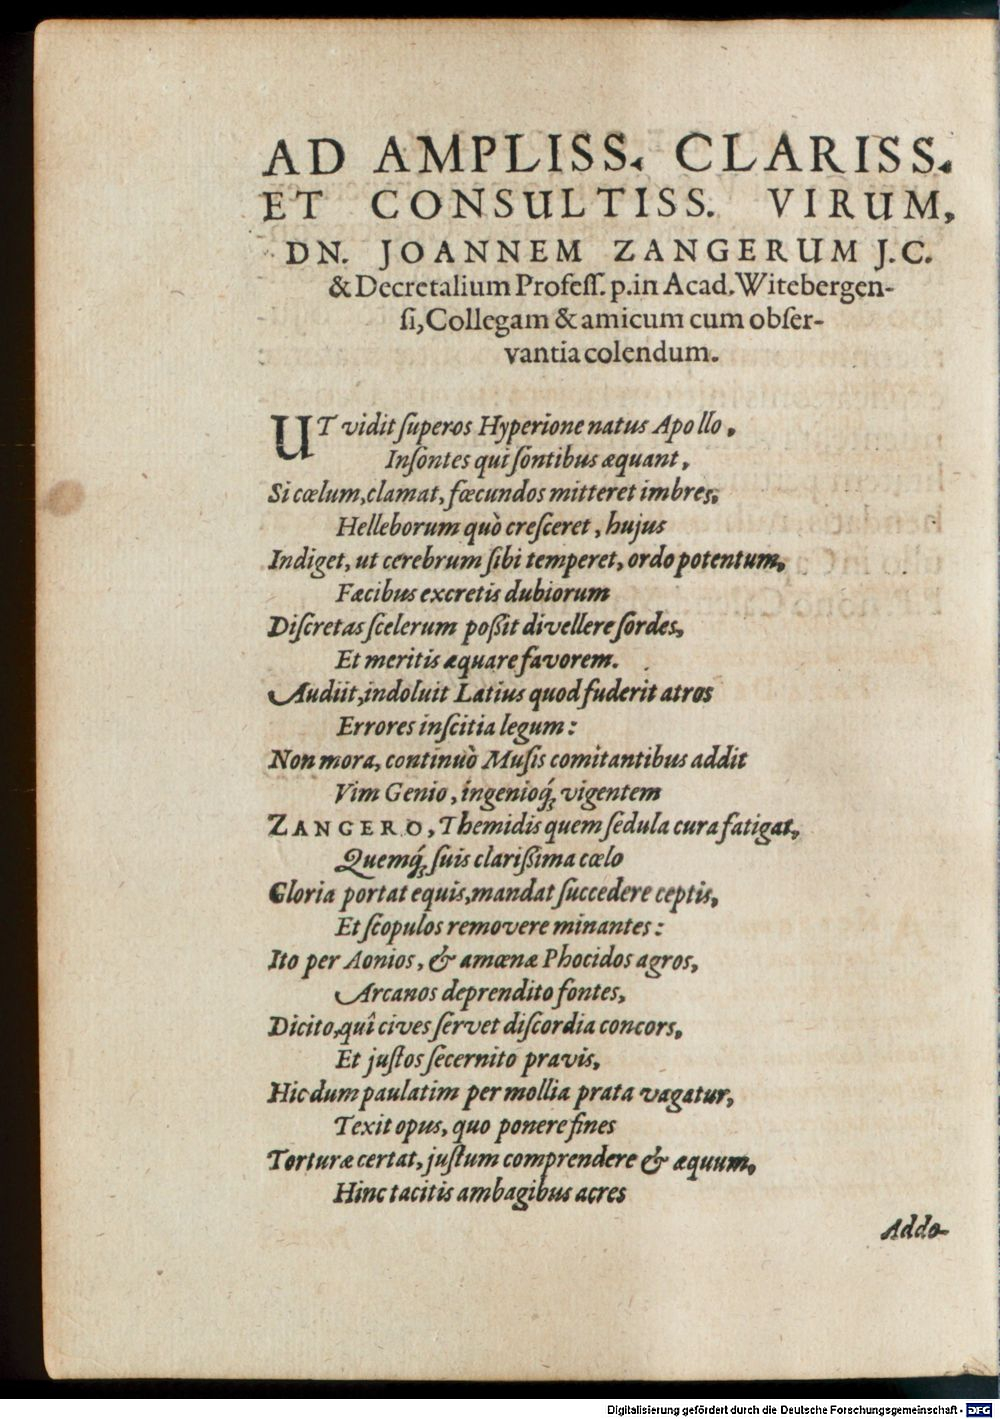 AD AMPLISS. CLARISS.
ET CONSULTISS. VIRUM,
DN. JOANNEM ZANGERUM J.C.
& Decretalium Profeſſ. p. in Acad. Witebergen-
ſi, Collegam & amicum cum obſer-
vantia colendum.
UT vidit ſuperos Hyperione natus Apollo,
Inſontes qui ſontibus æquant,
Si cœlum, clamat, fœcundos mitteret imbres,
Helleborum quò creſceret, hujus
Indiget, ut cerebrum ſibi temperet, ordo potentum,
Fæcibus excretis dubiorum
Diſcretas ſcelerum poßit divellere ſordes,
Et meritis æquare favorem.
Audiit, indoluit Latius quod fuderit atros
Errores inſcitia legum:
Non mora, continuò Muſis comitantibus addit
Vim Genio, ingenioq́; vigentem
ZANGERO, Themidis quem ſedula cura fatigat,
Quemq́; ſuis clarißima cœlo
Gloria portat equis, mandat ſuccedere ceptis,
Et ſcopulos removere minantes:
Ito per Aonios, & amœnæ Phocidos agros,
Arcanos deprendito fontes,
Dicito, quî cives ſervet diſcordia concors,
Et juſtos ſecernito pravis,
Hic dum paulatim per mollia prata vagatur,
Texit opus, quo ponere fines
Torturæ certat, juſtum comprendere & æquum,
Hinc tacitis ambagibus acres
Addo-
Digitalisierung gefördert durch die Deutsche Forschungsgemeinschaft - DFG